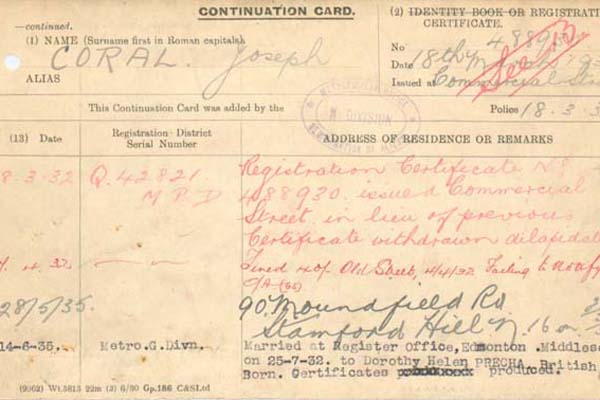 CONTINUATION CARD.
(2) IDENTITY BOOK OR REGISTRATI
—continued.
(1) NAME (Surname first in Roman capitals).
CORAL. Joseph
No 488930
Date 18th
See 13
ALIAS
Issued at Commercial St
This Continuation Card was added by the
Police 18.3.3
N DIVISION
(13) Date
Registration District
Serial Number
ADDRESS OF RESIDENCE OR REMARKS
8.3.32
Q.42821
M P D
Registration Certificate No
488930. issued Commercial
Street in lieu of previous
Certificate withdrawn dilapidat
4.32
Fined 40/- Old Street, 4/4/32 Failing to notify
C/A
28/5/35.
90. Moundfield Rd
Stamford Hill N. 16
14-6-35.
Metro.G.Divn.
Married at Register Office,Edmonton .Middlese
on 25-7-32. to Dorothy Helen PRECHA. British
Born. Certificates xxxxxxxxx produced.
(9962) Wt.3813 22m (3) 6/30 Gp.186 C&SLtd